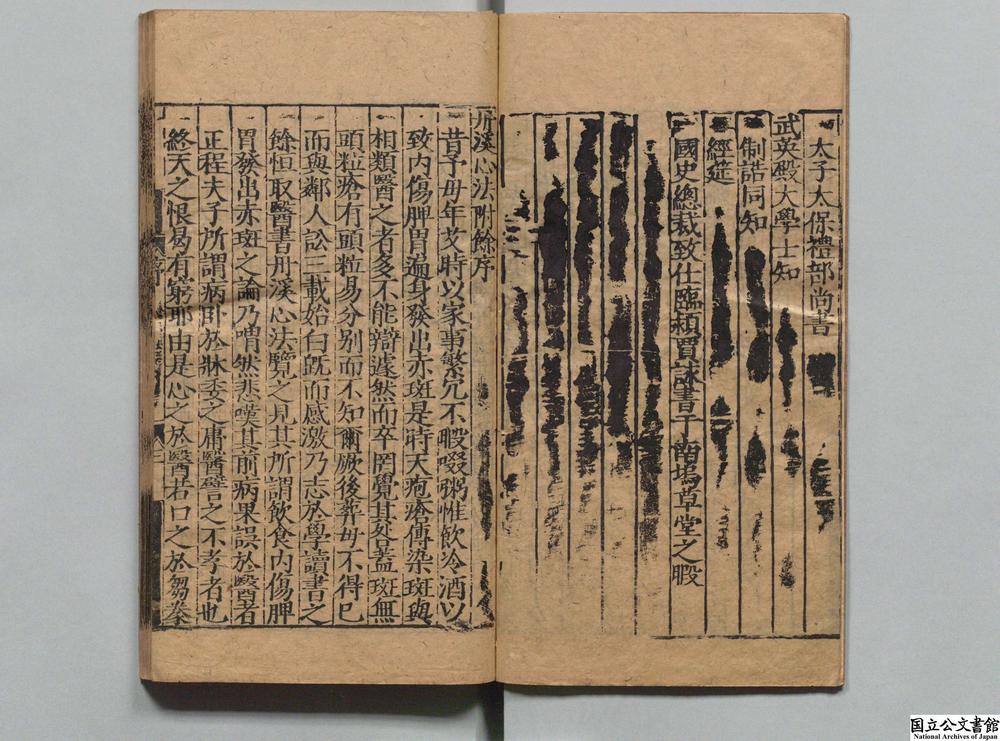 太子太保禮部尚書
武英殿大學士知
制誥同知
經筵
國史總裁致仕臨潁賈詠書于南塢草堂之暇
丹溪心法附餘序
昔予母年艾時以家事繁冗不暇啜粥惟飲冷酒以
致內傷脾胃遍身發出赤斑是時天疱瘡傳染斑與
相類醫之者多不能辯遽然而卒罔覺其咎蓋斑無
頭粒瘡有頭粒易分別而不知爾厥後葬母不得已
而與鄰人訟三載始白旣而感激乃志於學讀書之
餘恒取醫書丹溪心法覽之見其所謂飲食內傷脾
胃發出赤斑之論乃喟然悲嘆其前病果誤於醫者
正程夫子所謂病卧於牀委之庸醫譬之不孝者也
終天之恨曷有窮耶由是心之於醫若口之於芻豢
序
国立公文書館
National Archives of Japan